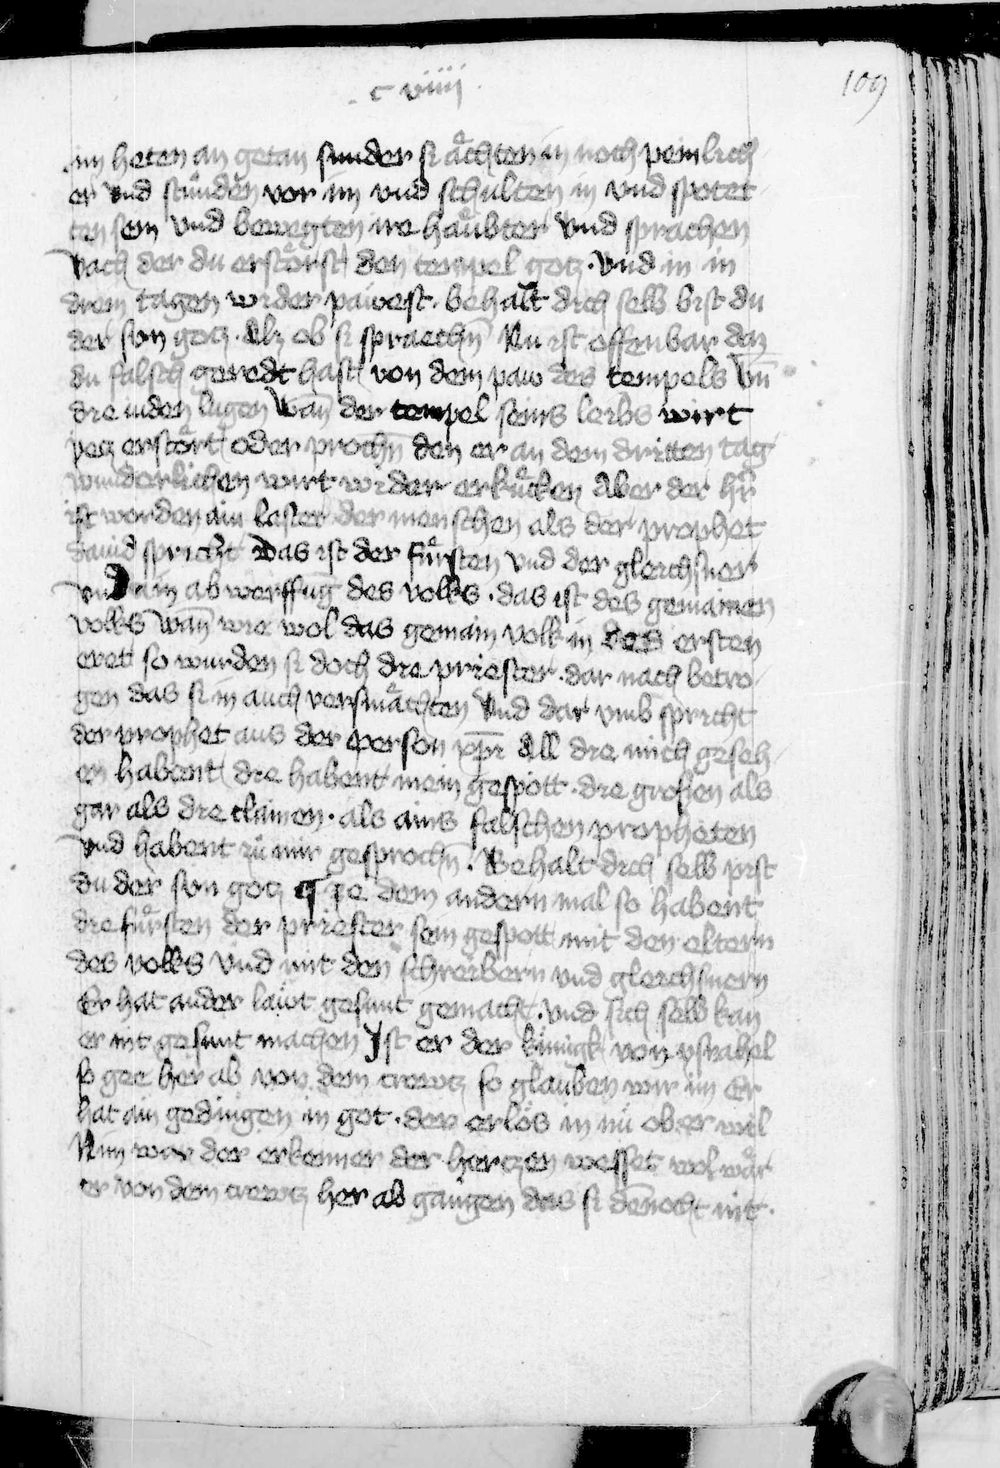 c viiii
109
im heten an getan sunder si aͤchten in noch peinlich
er vnd stuͤnden vor im vnd schulten in vnd spotet
ten sein vnd bewegten ire haͤubter Vnd sprachen
Vach der du erstoͤrst den tempel gotz · Vnd in in
drein tagen wider pawest · behalt dich selb bist du
der sun gotz · Alz ob si spraechn̄ Nu ist offenbar daz
du falsch geredt hast von dem paw des tempels Vn̄
die iuden lugen Wan̄ der tempel seins leibs wirt
yetz erstoͤrt oder prochn̄ den er an dem dritten tag
wunderlichen wirt wider erkuͤcken Aber der hr̄
ist worden ain laster der menschen als der prophet
dauid spricht Das ist der fuͤrsten vnd der gleichsner
vnd ain ab werffung des volks · das ist des gemainen
volks Wan̄ wie wol das gemain volk in des ersten
eret so wurden si doch die priester · dar nach betro
gen das si in auch versmaͤchten Vnd dar vmb spricht
der prophet aus der person xp̄i All die mich geseh
en habent die habent mein gespoͤtt · die grossen als
gar als die clainen · als ains falschen propheten
Vnd habent zuͤ mir gesprochn̄ · Behalt dich selb pist
du der sun gotz ¶ ze dem andern mal so habent
die fuͤrsten der priester sein gespott mit den eltern
des volks Vnd mit den schreibern vnd gleichsnern
Er hat ander lawt gesunt gemacht · vnd sich selb kan
er nit gesunt machen Ist er der kuͤnigk von ysrahel
so gee her ab von dem crewtz so glauben wir im Er
hat ain gedingen in got · der erloͤs in nu ob er wil
Nun war der erkenner der hertzen wesset wol waͤr
er von dem crewtz her ab gangen das si dennocht nit ·